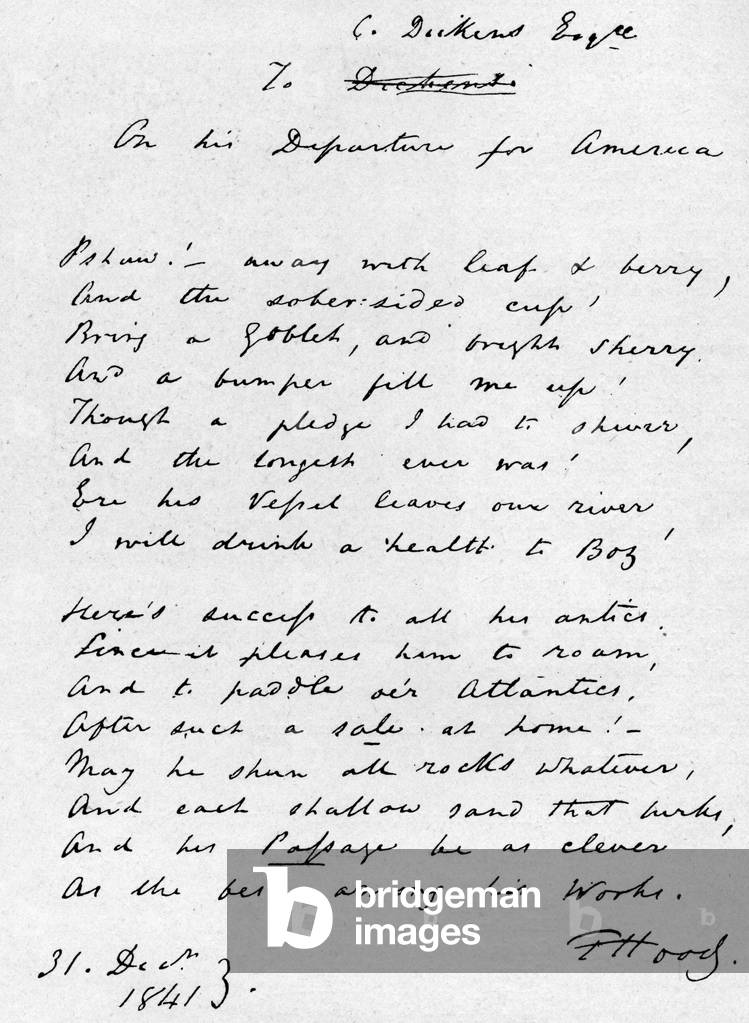 C. Dickens Esqre
To Dickens
On his Departure for America
Pshaw! – away with leaf & berry,
And the sober-sided cup!
Bring a Goblet, and bright Sherry
And a bumper fill me up!
Though a pledge I had to shiver,
And the longest ever was!
Ere his Vessel leaves our river
I will drink a health to Boz!
Here's success to all his antics,
Since it pleases him to roam,
And to paddle o'er Atlantics,
After such a sale at home! –
May he shun all rocks whatever,
And each shallow sand that lurks,
And his Passage be as clever
As the best among his Works.
THood.
31. Decr
1841.
bridgeman
images
b
b